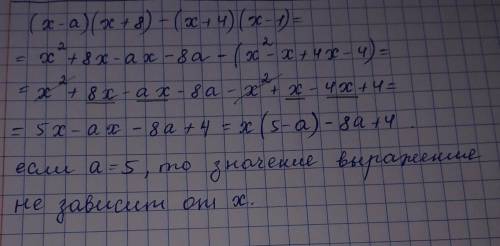 (x-a)(x+8)-(x+4)(x-1)=
= x²+8x-ax-8a-(x²-x+4x-4)=
= x²+8x-ax-8a-x²+x-4x+4=
= 5x-ax-8a+4=x(5-a)-8a+4.
если a=5, то значение выражение
не зависит от x.